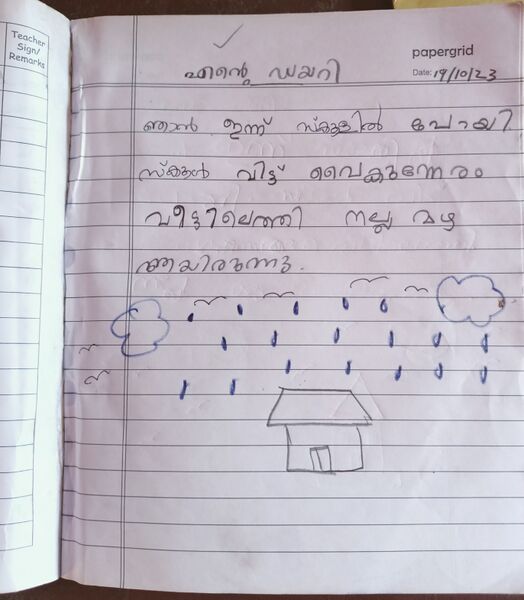 Teacher
Sign/
Remarks
papergrid
Date: 19/10/23
എന്റെ ഡയറി
ഞാൻ ഇന്ന് സ്കൂളിൽ പോയി.
സ്കൂൾ വിട്ട് വൈകുന്നേരം
വീട്ടിലെത്തി നല്ല മഴ
ആയിരുന്നു.